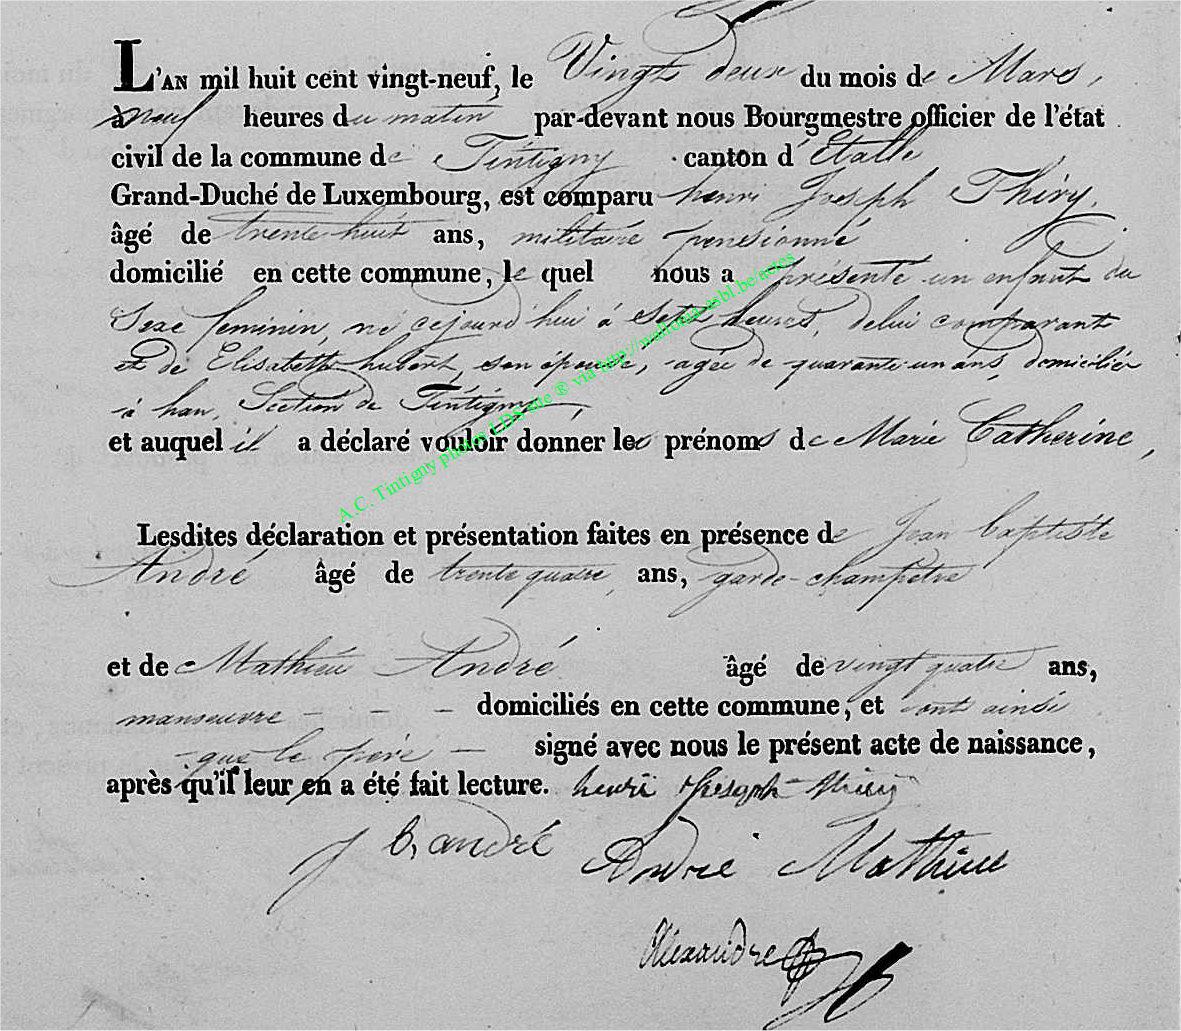 L'AN mil huit cent vingt-neuf, le Vingt deux du mois de Mars,
à neuf heures du matin par-devant nous Bourgmestre officier de l'état
civil de la commune de Tintigny canton d'Etalle
Grand-Duché de Luxembourg, est comparu henri Joseph Thiry,
âgé de trente huit ans, militaire pensionné
domicilié en cette commune, le quel nous a présenté un enfant du
Sexe feminin, né cejourd'hui à sept heures, delui comparant
et de Elisabeth hubert, son épouse, agée de quarante-un ans, domiciliés
à han, Section de Tintigny,
et auquel il a déclaré vouloir donner les prénoms de Marie Catherine,
A.C. Tintigny photos LDS site ® via http://wallonia.asbl.be/actes
Lesdites déclaration et présentation faites en présence de Jean baptiste
André âgé de trente quatre ans, garde-champêtre
et de Mathieu André âgé de vingt quatre ans,
manoeuvre - - - domiciliés en cette commune, et ont ainsi
- que le père - signé avec nous le présent acte de naissance,
après qu'il leur en a été fait lecture. henri joseph thiry
j b andré André Mathieu
Alexandre